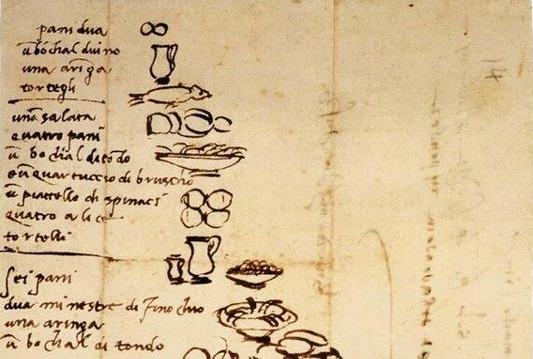 pani dua
ū bochal dvino
una aringa
tortegli
una salata
quatro pani
ū bochal di tōdo
e ū quartuccio di bruscho
ū piattello di spinaci
quatro alice
tortelli
sei pani
dua minestre di finochio
una aringa
ū bochal di tondo